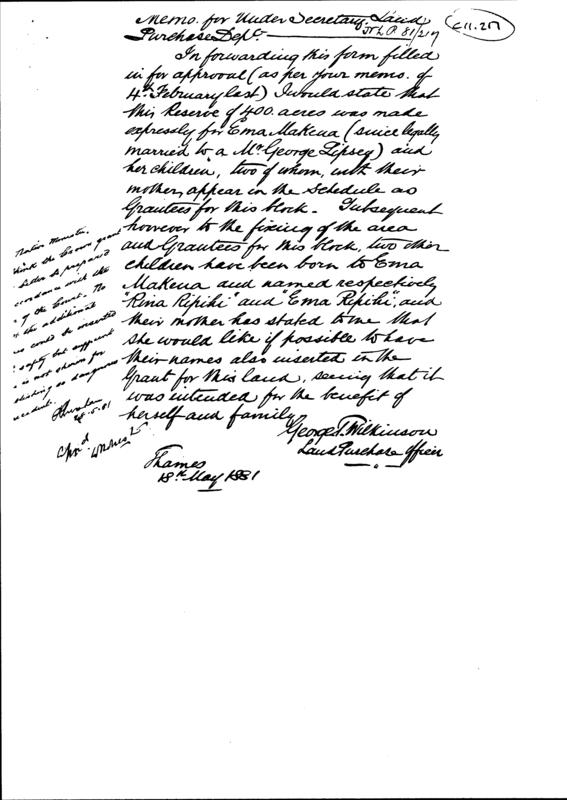 Memo. for Under Secretary. Land
Purchase Dept.
N.L.P. 81/217
C11.217
In forwarding this form filled
in for approval (as per your memo. of
4th February last) I would state that
this Reserve of 400 acres was made
expressly for Ema Makena (since legally
married to a Mr George Lipsey) and
her children, two of whom, with their
mother, appear in the schedule as
Grantees for this block. Subsequent
however to the fixing of the area
and Grantees for this block, two other
children have been born to Ema
Makena and named respectively
"Rina Ripihi" and "Ema Ripihi", and
their mother has stated to me that
she would like if possible to have
their names also inserted in the
Grant for this land, seeing that it
was intended for the benefit of
herself and family
George T. Wilkinson
Land Purchase Officer
Thames
18th May 1881
Native Minister.
think the Crown grant
better be prepared
with the
of the Court. The
the additional
could be inserted
safety but sufficient
is not shown for
as dangerous
28.5.81